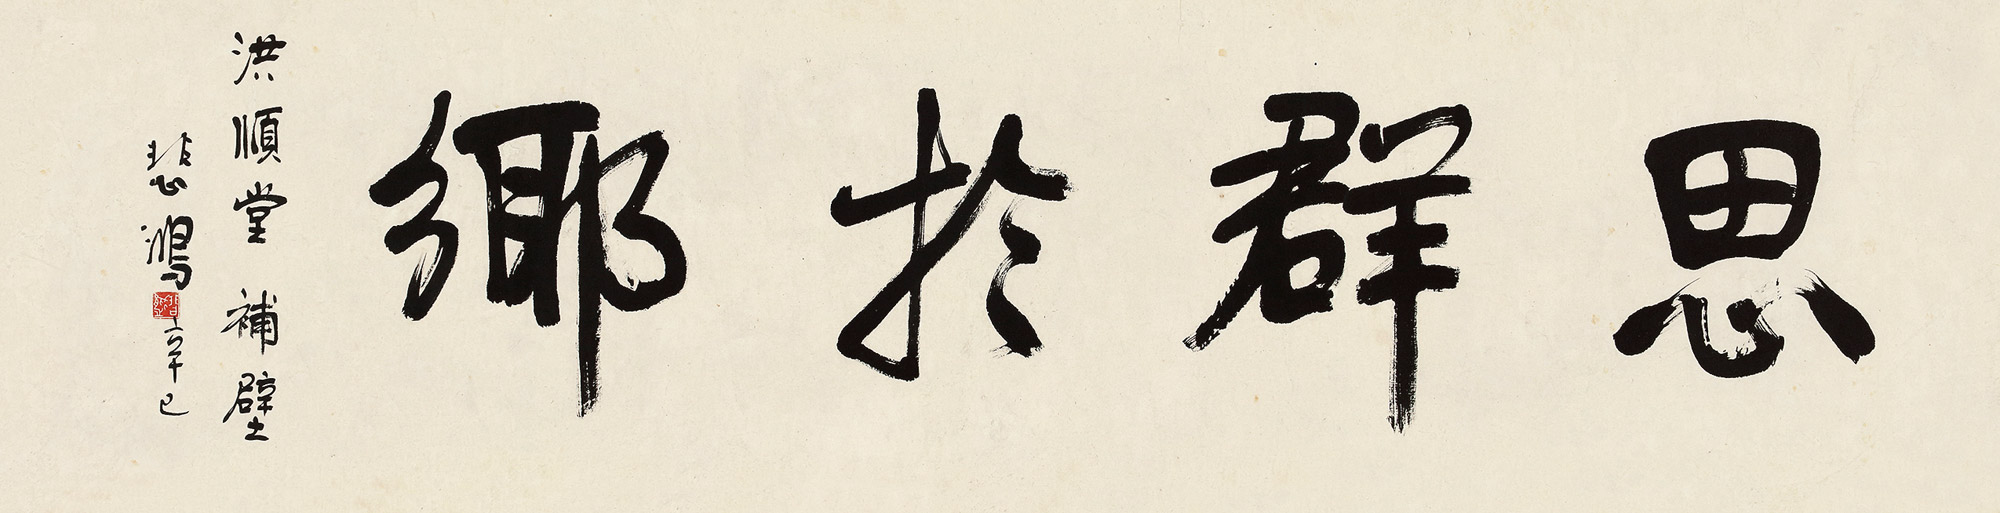 思群於鄉
洪順堂補壁
悲鴻
辛巳